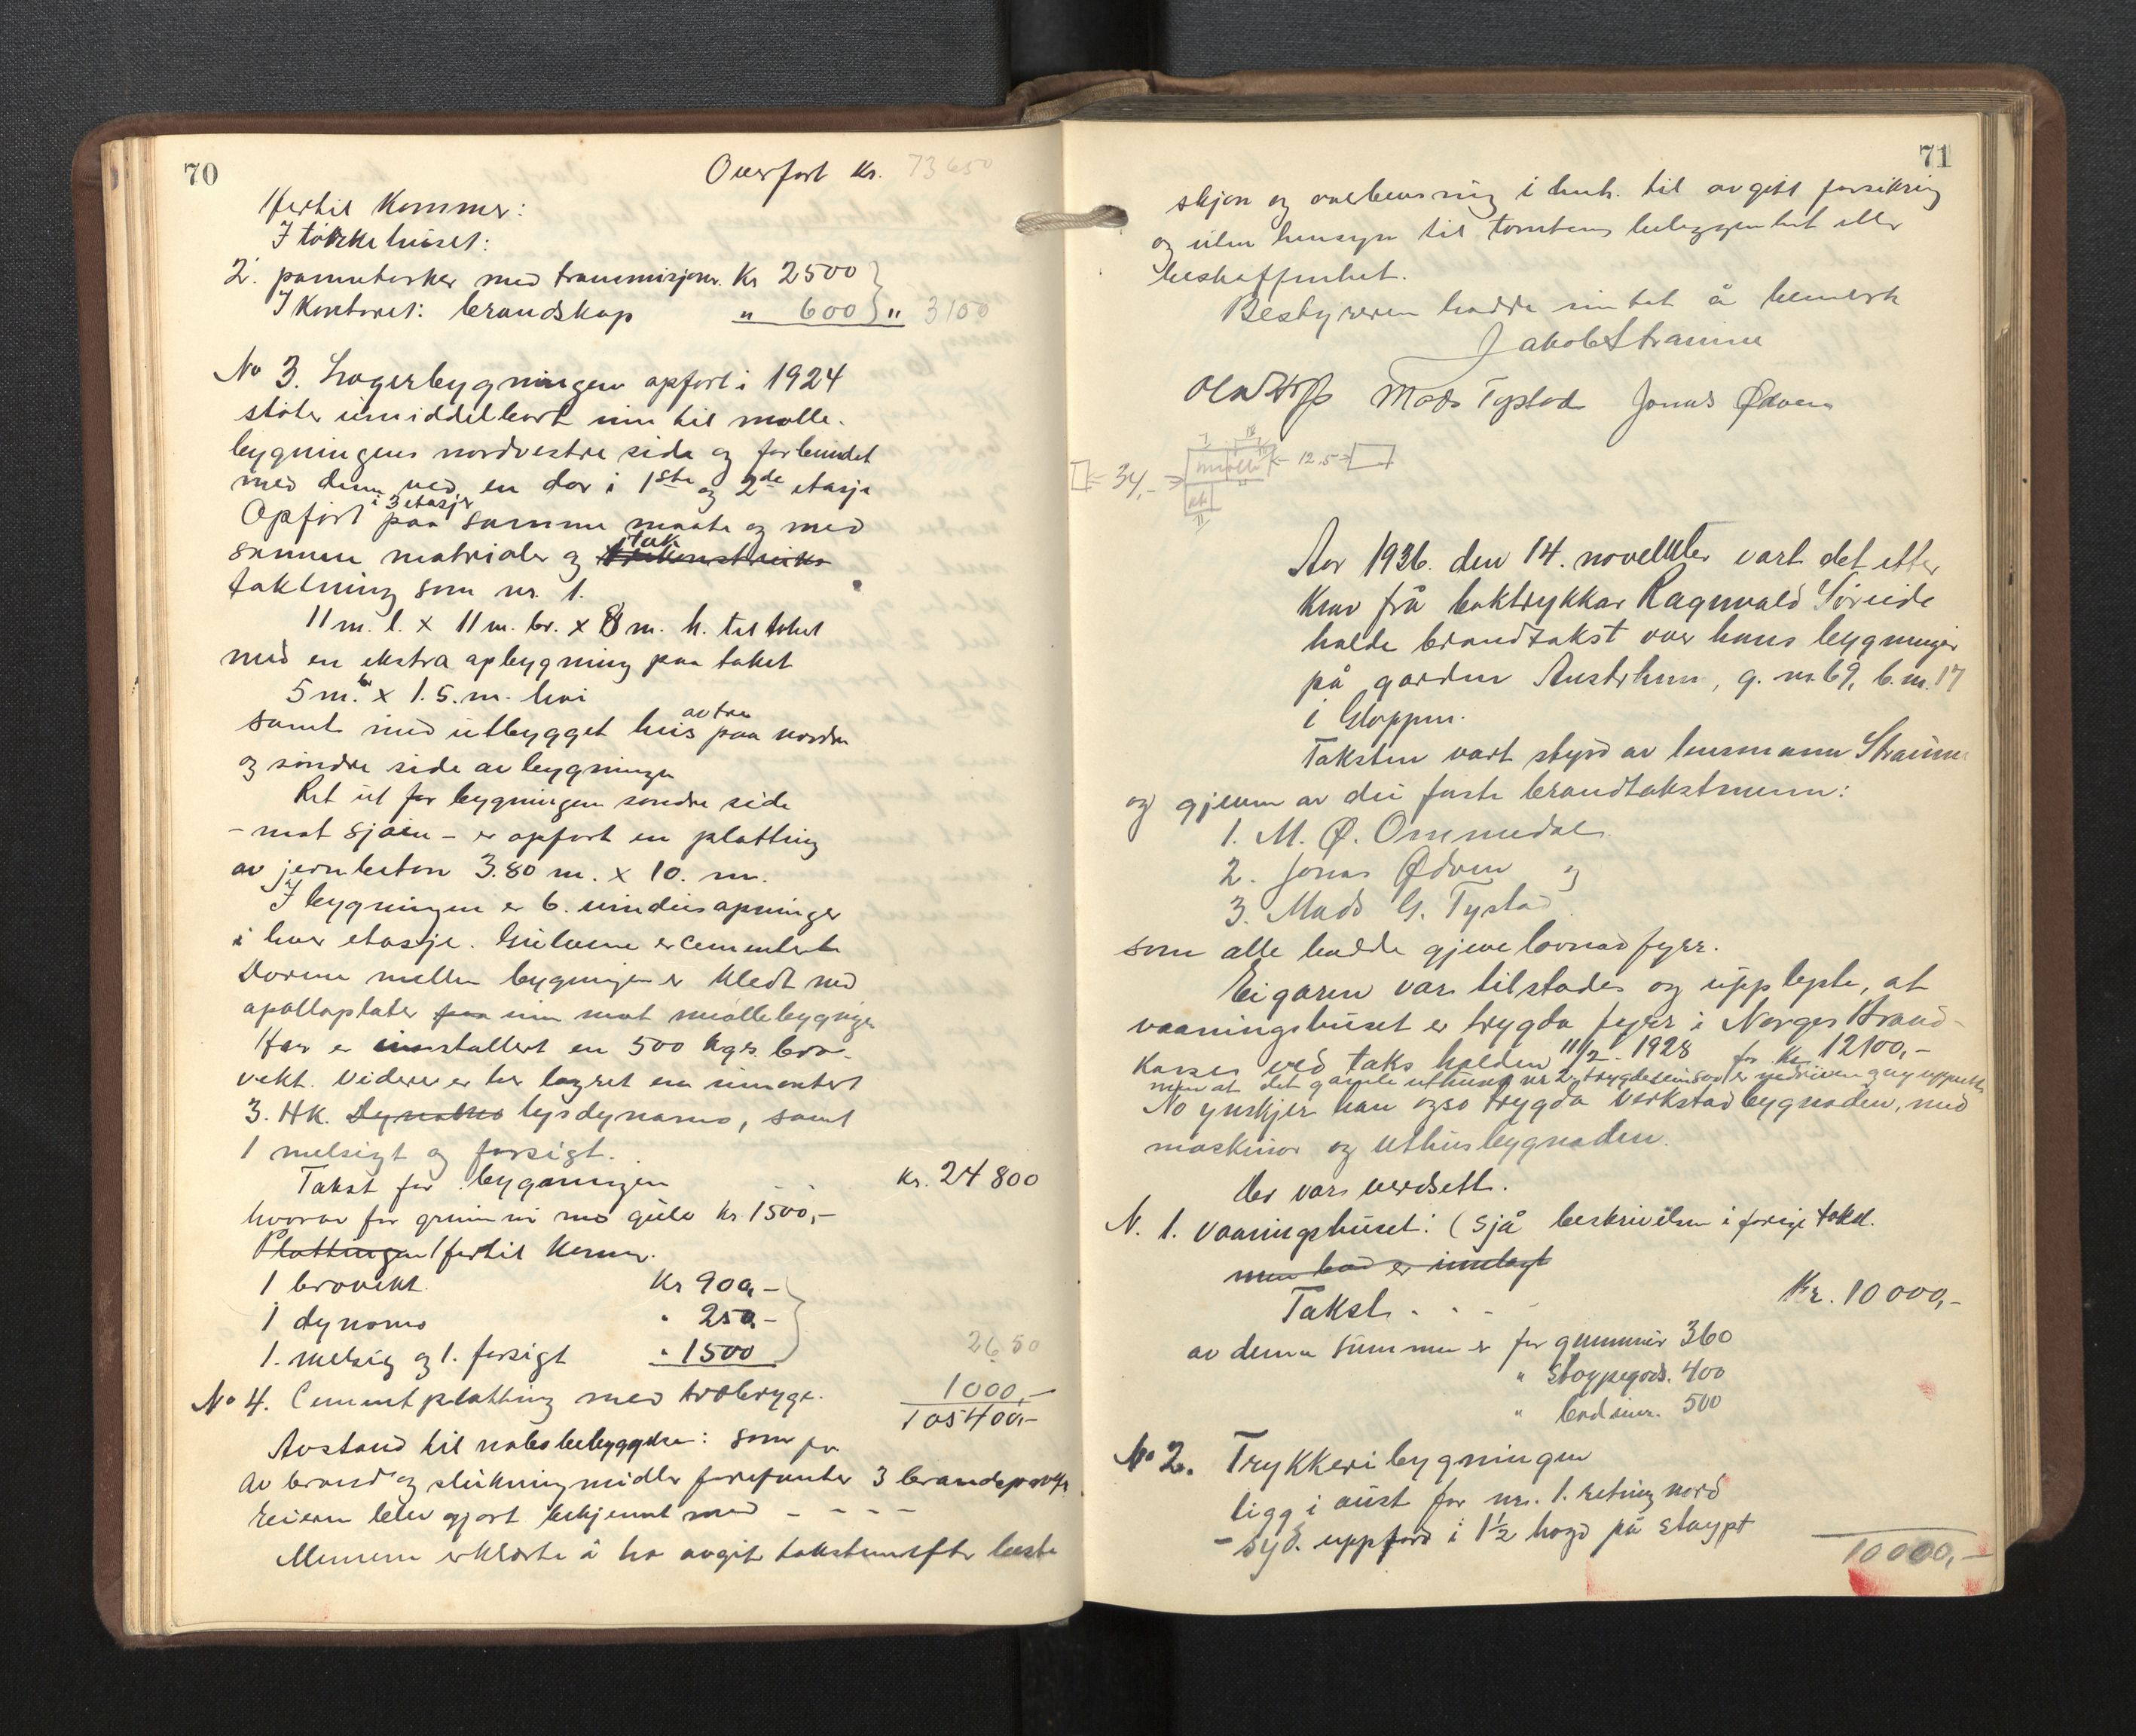 70
Overfört kr. 73650
Hertil kommer:
I tørkehuset:
2. pannetørker med transmisjoner. Kr 2500
I Kontoret: brandskap " 600 " 3100
No 3. Lagerbygningen opført i 1924
støter umiddelbart inn til mølle-
bygningens nordvestre side og forbundet
med denne ved en dør i 1ste og 2de etasje
Opført i 3 etasjer paa samme maate og med
samme matrialer og tak
taktekning som nr. 1.
11 m. l. x 11 m. br. x 8 m. h. til taket
med en ekstra opbygning paa taket
5 m. br x 1.5. m. høi
samt med utbygget hus av tre paa nordre
og søndre side av bygningen
Ret ut for bygningen søndre side
- mot sjøen - er opført en platting
av jernbeton 3.80 m. x 10. m.
I bygningen er 6. vindusåpninger
i hver etasje. Gulvene er cementerte
Dørene mellem bygningen er kledt med
apolloplater paa inn mot møllebygnigen
Her er innstallert en 500 kgs. bro-
vekt. Videre er her lagret en umontert
3. HK. Dynamo lysdynamo, samt
1 melsigt og forsigt.
Takst for bygningen kr. 24 800
hvorav for grunnmur med gulv kr. 1500,-
Plattingen Hertil kommer.
1 brovekt. Kr 900,-
1 dynamo " 250,-
1. melsig og 1. forsigt " 1500 2650
No 4. Cementplatting med trebrygge. 1000,-
105400,-
Avstand til nabobebyggelse: som før
Av brand og slukningmidler forefunter 3 brandsprøyter
Eieren blev gjort bekjennt med - - - -
Mennene erklærte å ha avgit taksten efter beste
71
skjøn og overbevisning i henh. til avgitt forsikring
og uten hensyn til tomtens beliggenhet eller
beskaffenhet.
Bestyreren hadde intet å bemerke
Jakob Straume
Mads Tystad Jonas Ødven
7
mølle
34,- 12.5
11
Aar 1936. den 14. november vart det etter
krav frå boktrykkar Ragnvald Søreide
halde brandtakst over hans bygningar
på garden Austrheim, g. nr. 69, b. nr. 17
i Gloppen.
Taksten vart styrd av lensmann Straume
og gjevem av dei faste brandtakstmenn:
1. M. Ø. Ommedal
2. Jonas Ødven og
3. Mads G. Tystad.
som alle hadde gjeve lovnad fyrr.
Eigaren var tilstades og upplyste, at
vaaningshuset er trygda fyrr i Norges Brand-
kasse ved takst halden 11/2. 1928 for kr. 12100,-
men at det gamle uthuset nr 2 trygdesum 800 er nedriven og ny uppsett
No ynskjer han ogso trygda verkstadbygnaden, med
maskinor og uthusbygnaden.
Der vart verdsett.
N. 1. vaaningshuset: (Sjå beskrivelsen i forige takst.
men bad er innlagt
Takst. . - - Kr. 10 000,-
av denne summen er for grunnmur 360
" støypegods. 400
" bordsmr. 500
No 2. Trykkeribygningen
ligg i aust for nr. 1. retning nord
- syd. uppførd i 1½ høgd på støypt
10000,-